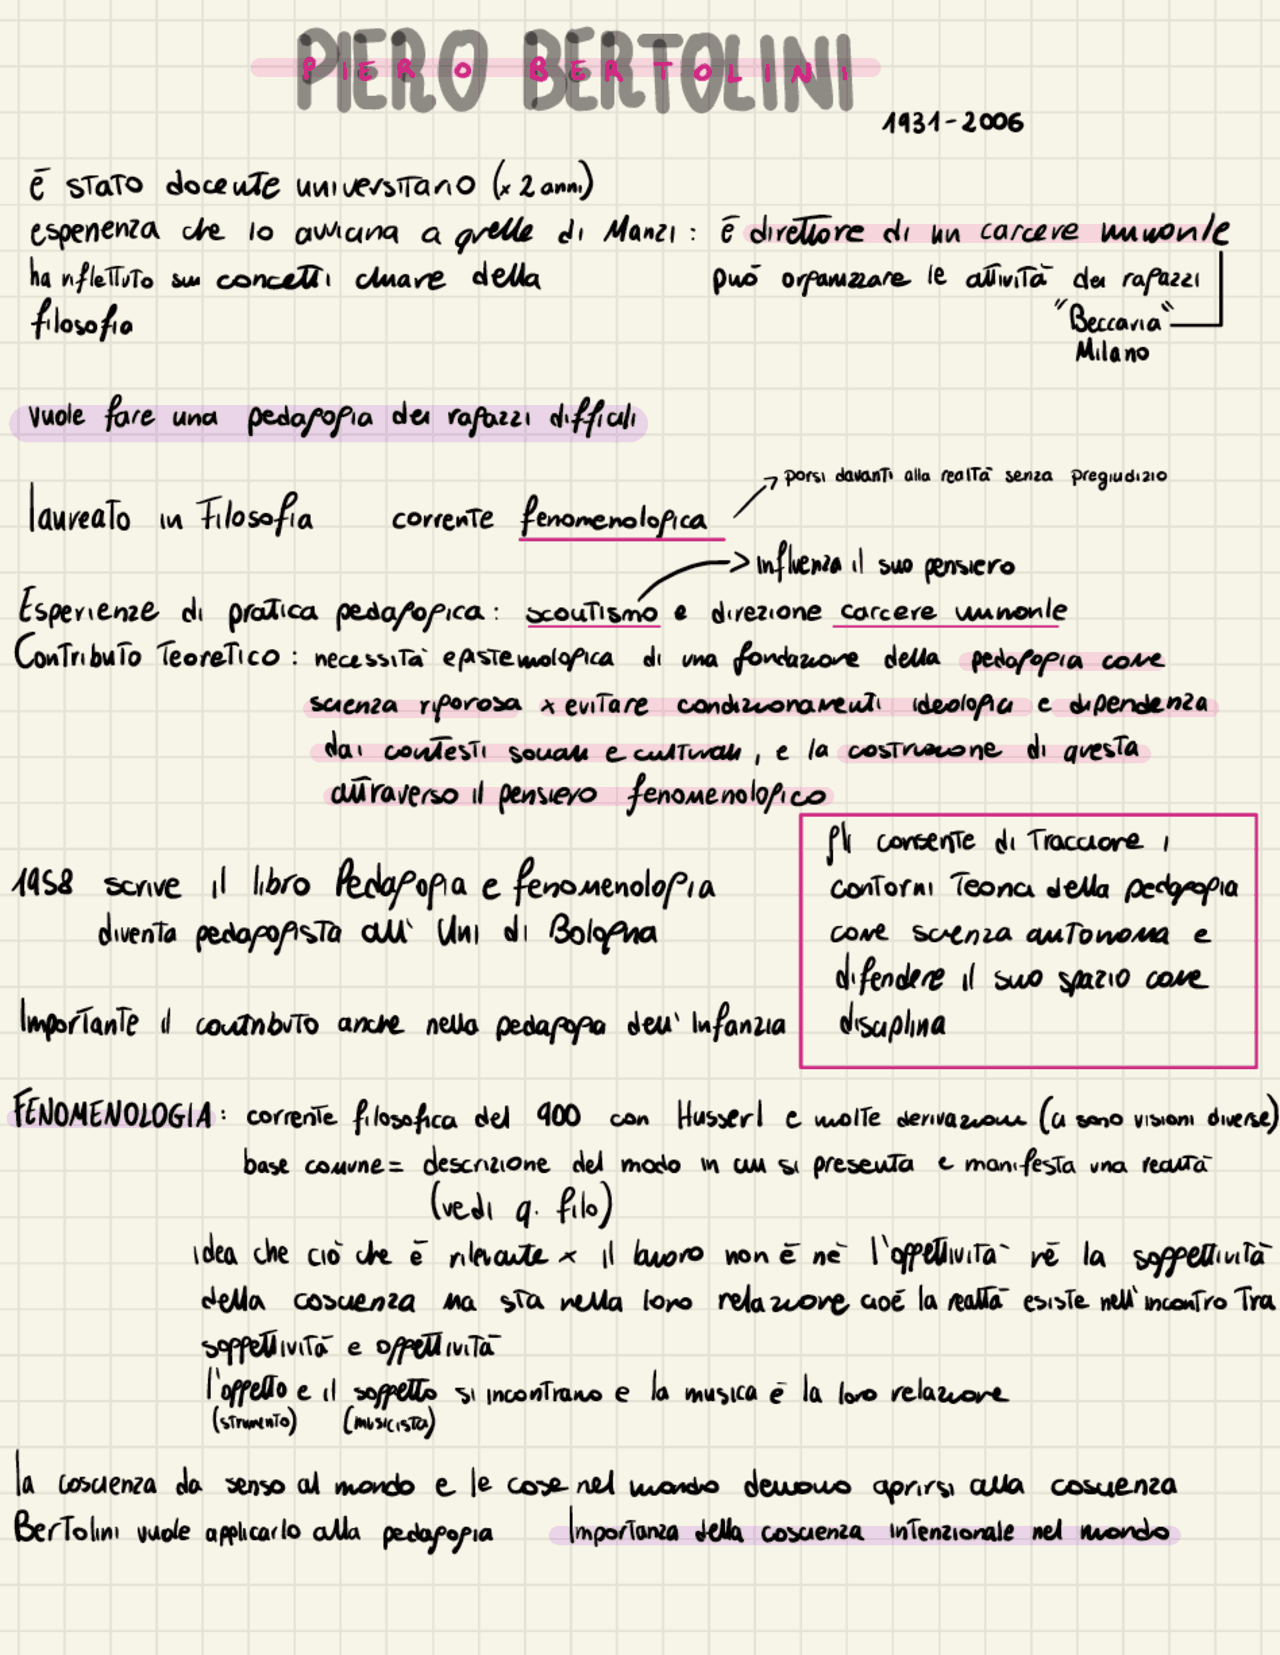 PIERO BERTOLINI
1931-2006
è stato docente universitario (x 2 anni)
esperienza che lo avvicina a quelle di Manzi: è direttore di un carcere minorile
ha riflettuto sui concetti chiave della
filosofia
può organizzare le attività dei ragazzi
"Beccaria"
Milano
vuole fare una pedagogia dei ragazzi difficili
porsi davanti alla realtà senza pregiudizio
laureato in Filosofia corrente fenomenologica
influenza il suo pensiero
Esperienze di pratica pedagogica: scoutismo e direzione carcere minorile
Contributo Teoretico: necessità epistemologica di una fondazione della pedagogia come
scienza rigorosa x evitare condizionamenti ideologici e dipendenza
dai contesti sociali e culturali, e la costruzione di questa
attraverso il pensiero fenomenologico
gli consente di Tracciare i
contorni Teorici della pedagogia
come scienza autonoma e
difendere il suo spazio come
disciplina
1958 scrive il libro Pedagogia e fenomenologia
diventa pedagogista all' Uni di Bologna
Importante il contributo anche nella pedagogia dell' Infanzia
FENOMENOLOGIA: corrente filosofica del 900 con Husserl e molte derivazioni (ci sono visioni diverse)
base comune = descrizione del modo in cui si presenta e manifesta una realtà
(vedi q. filo)
idea che ciò che è rilevante x il lavoro non è nè l'oggettività nè la soggettività
della coscienza ma sta nella loro relazione cioè la realtà esiste nell'incontro Tra
soggettività e oggettività
l'oggetto e il soggetto si incontrano e la musica è la loro relazione
(strumento) (musicista)
la coscienza da senso al mondo e le cose nel mondo devono aprirsi alla coscienza
Bertolini vuole applicarlo alla pedagogia Importanza della coscienza intenzionale nel mondo